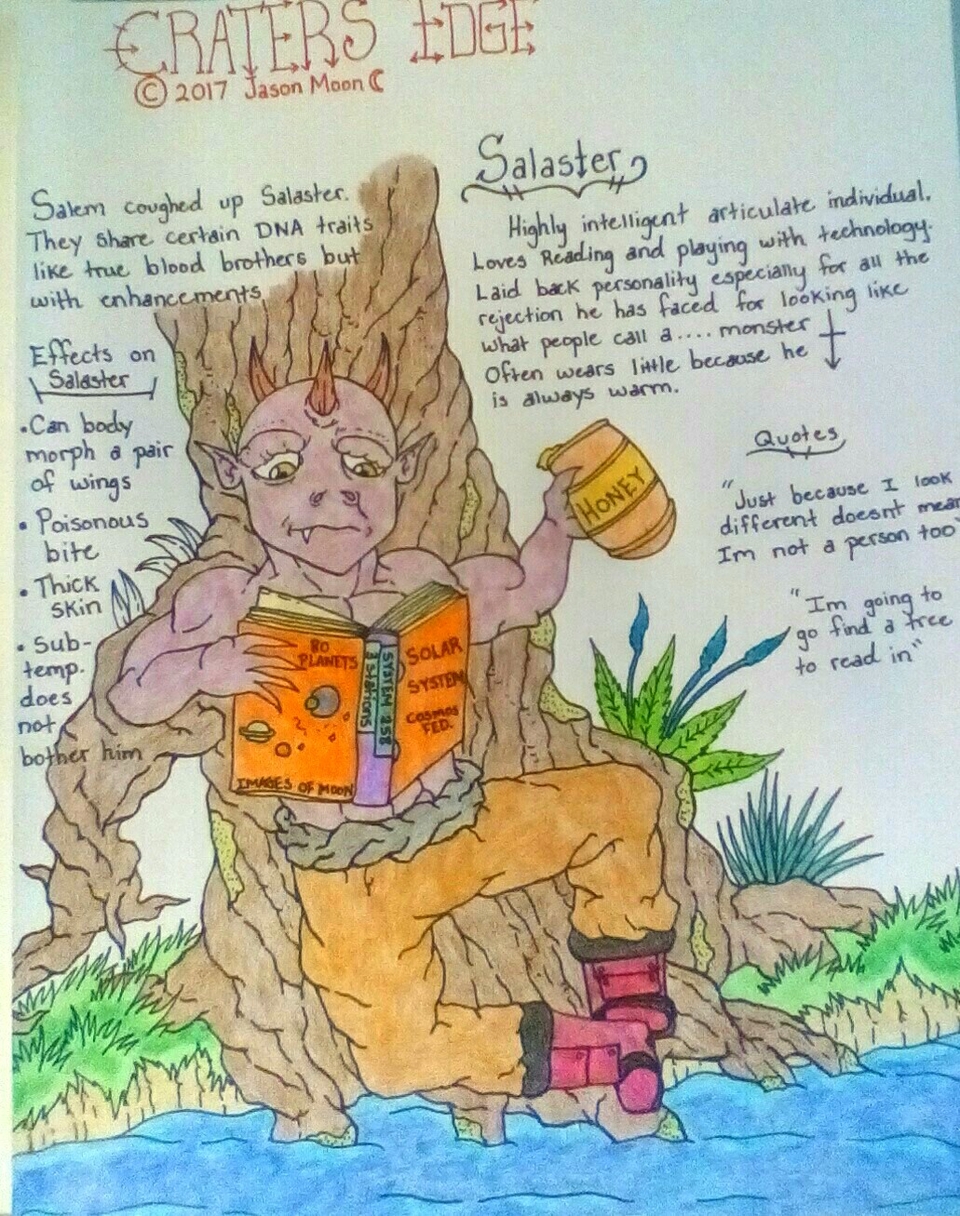 CRATERS EDGE
© 2017 Jason Moon
Salem coughed up Salaster.
They share certain DNA traits
like true blood brothers but
with enhancements
Effects on
Salaster
•Can body
morph a pair
of wings
• Poisonous
bite
• Thick
skin
• Sub-
temp.
does
not
bother him
Salaster
Highly intelligent articulate individual.
Loves Reading and playing with technology.
Laid back personality especially for all the
rejection he has faced for looking like
what people call a.... monster
Often wears little because he
is always warm.
Quotes
"Just because I look
different doesnt mean
Im not a person too"
"Im going to
go find a tree
to read in"
HONEY
80
PLANETS
IMAGES OF MOON
3 stations
SYSTEM 258
SOLAR
SYSTEM
Cosmos
FED.